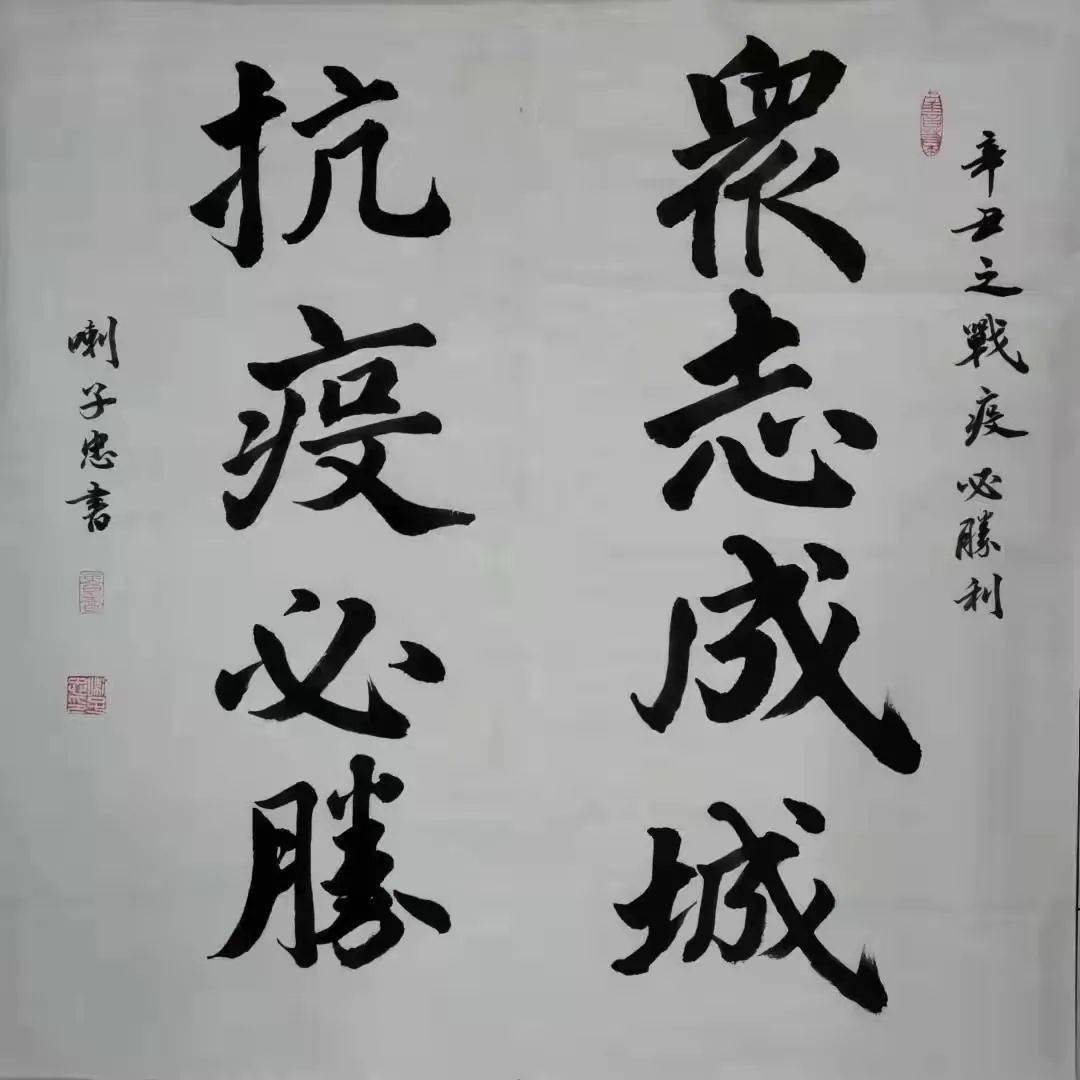 辛丑之戰疫必勝利
眾志成城
抗疫必勝
喇子忠書